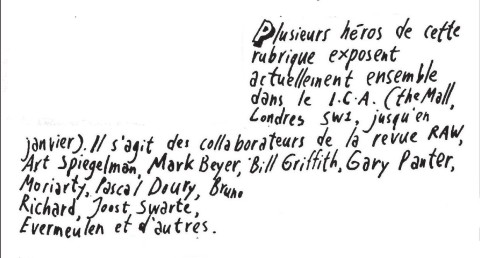 Plusieurs héros de cette
rubrique exposent
actuellement ensemble
dans le I.C.A. (the Mall,
Londres SW1, jusqu'en
janvier). Il s'agit des collaborateurs de la revue RAW,
Art Spiegelman, Mark Beyer, Bill Griffith, Gary Panter,
Moriarty, Pascal Doury, Bruno
Richard, Joost Swarte,
Evermeulen et d'autres.